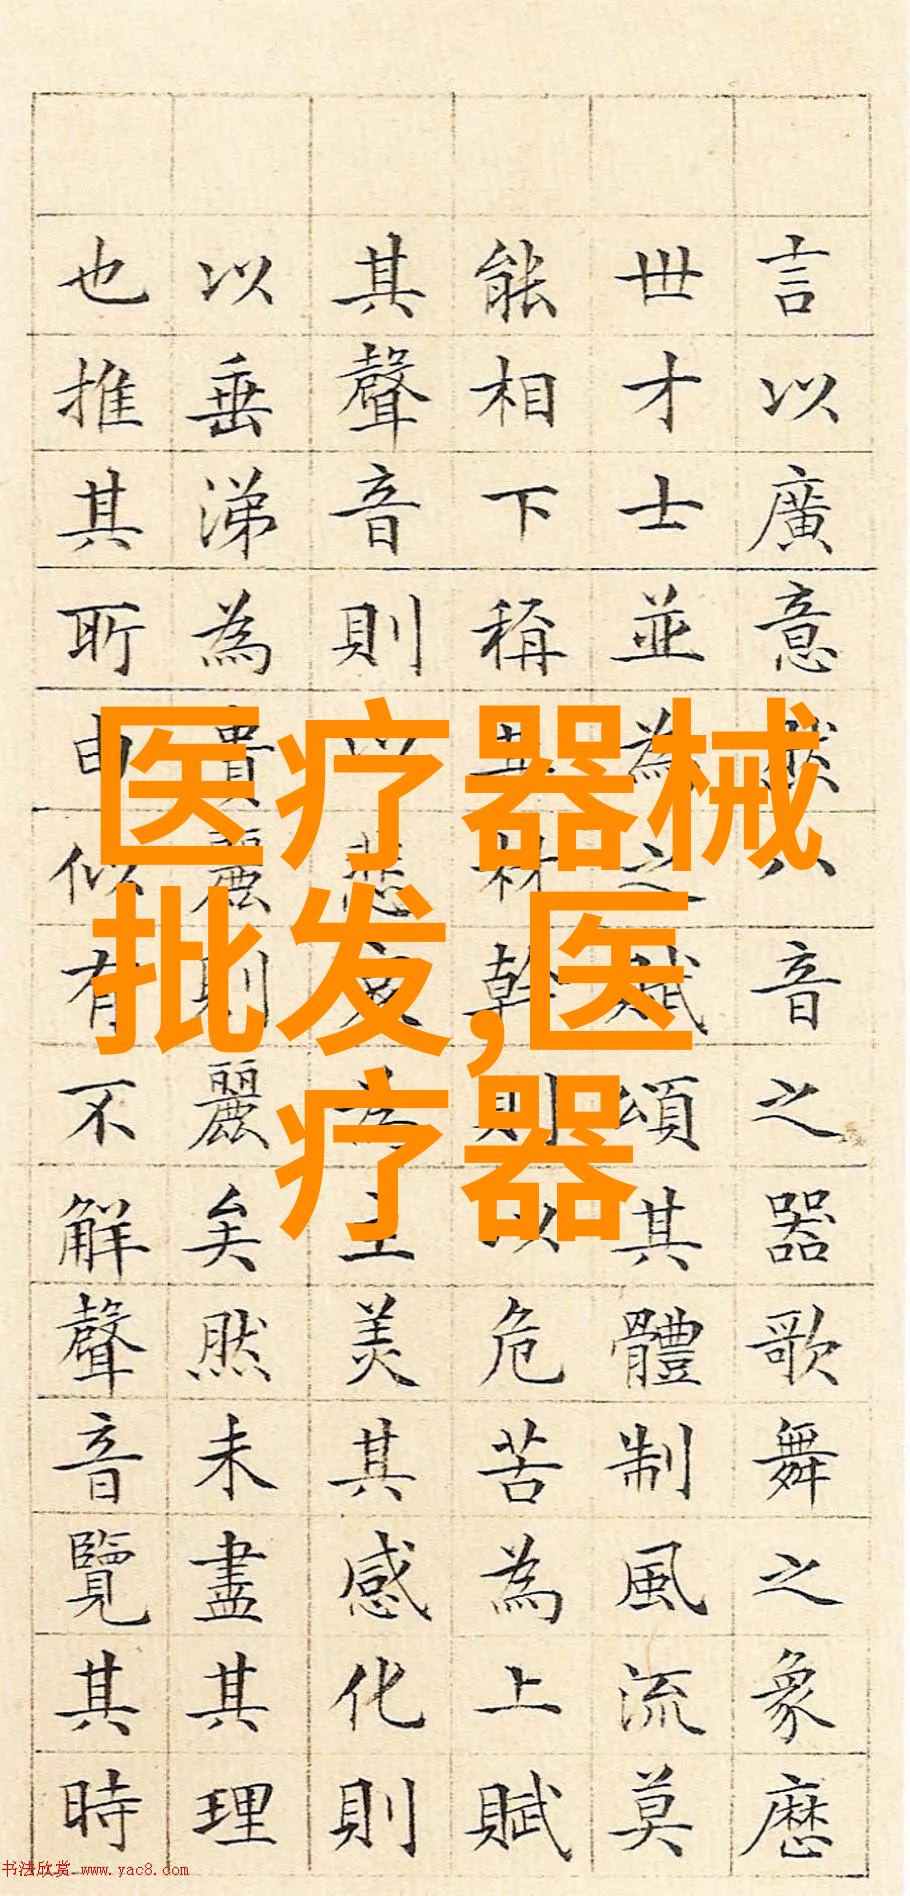 言以廣意然八音之器歌舞之象歷
世才士並為之賦頌其體制風流莫
能相下稱其材幹則以危苦為上賦
其聲音則以悲哀為主美其感化則
以垂涕為貴麗則麗矣然未盡其理
也推其所由似有不解聲音覽其時
医疗器械
批发,医
疗器
书法欣赏 www.yac8.com